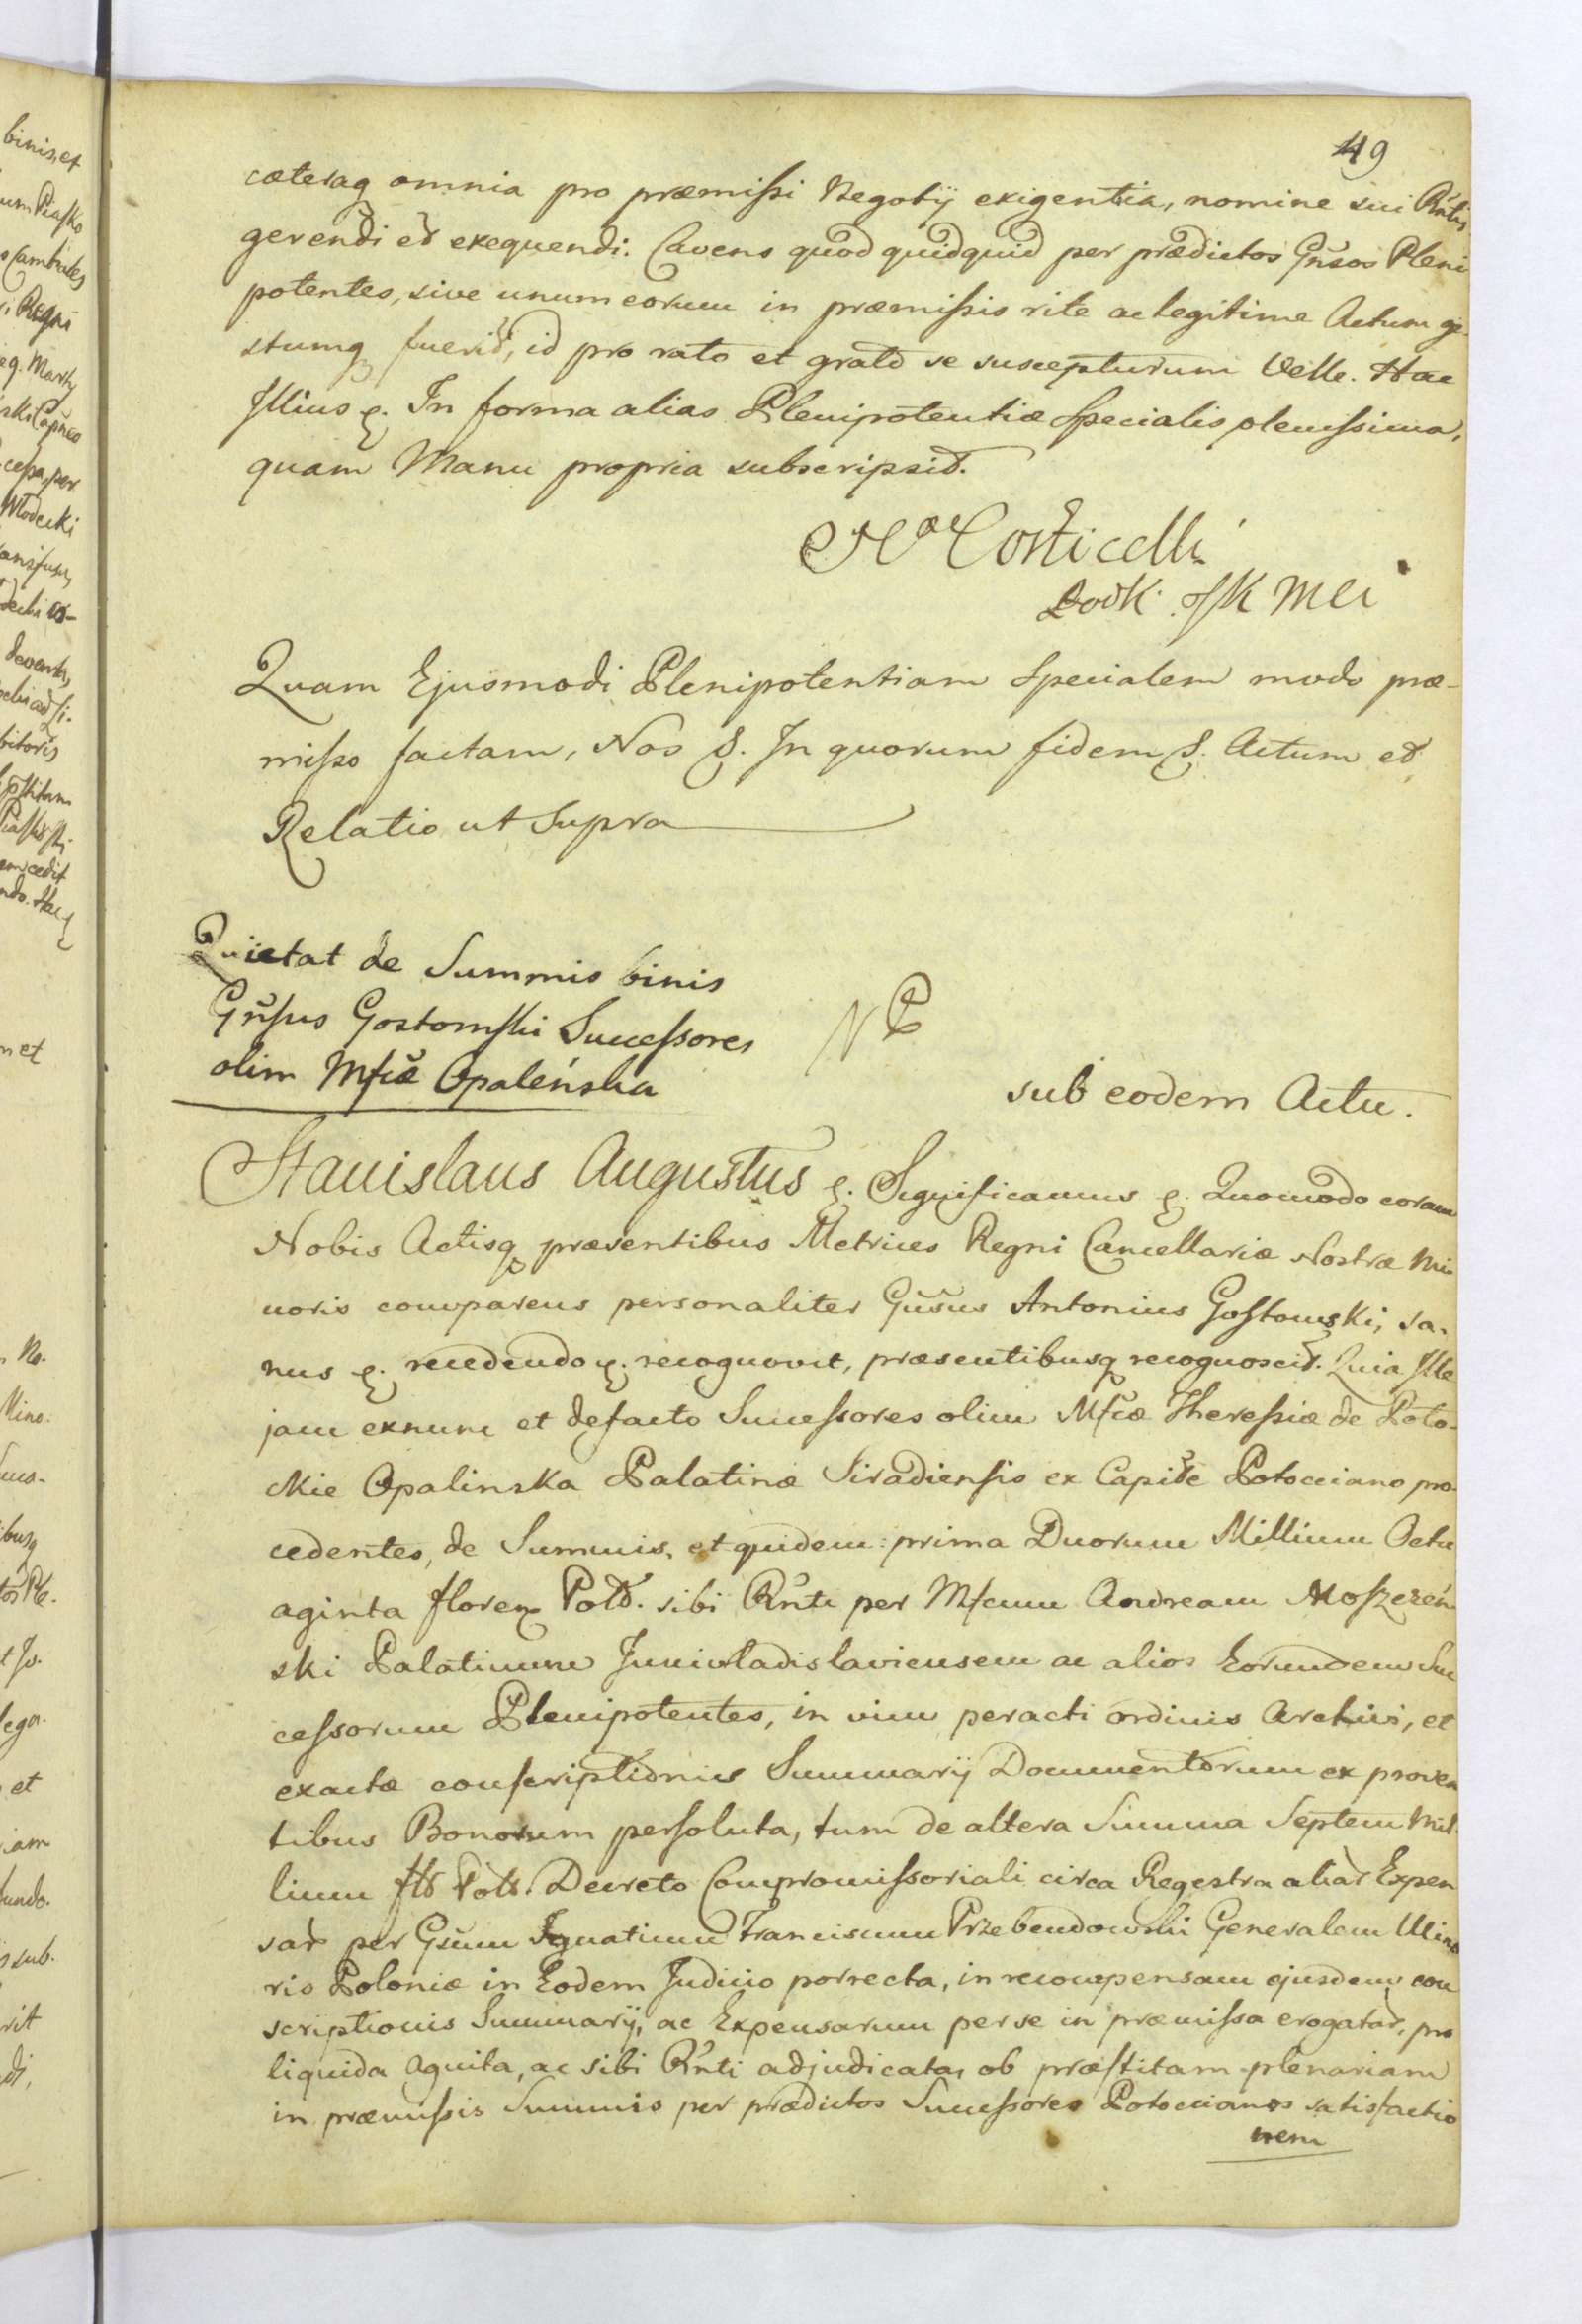 49
cæteraq omnia pro præmissi Negotij exigentia, nomine sui Rñtis
gerendi et exequendi. Cavens quod quidquid per prædictos Gñsos Pleni
potentes, sive unum eorum in præmissis rite ac legitime Actum ge-
stumq fuerit, id pro rato et grato se suscepturum Velle. Hac
Illius ꝛ. In forma alias Plenipotentiæ Specialis plenissima,
quam Manu propria subscripsit.
Corticelli
JK Mci
Quam Ejusmodi Plenipotentiam Specialem modo præ-
misso factam, Nos ꝛ. In quorum fidem ꝛ. Actum et
Relatio ut Supra
Quietat de Summis binis
Gñsus Gostomski Successores
olim Mfcæ Opaleńska
sub eodem Actu.
Stanislaus Augustus ꝛ. Significamus ꝛ. Quomodo coram
Nobis Actisq præsentibus Metrices Regni Cancellariæ Nostræ Mi-
noris comparens personaliter Gñsus Antonius Gostomski, sa-
nus ꝛ. recedendo ꝛ. recognovit, præsentibusq recognoscit. Quia Ille
jam exnunc et defacto Successores olim Mfcæ Theressiæ de Poto-
ckie Opalinska Palatinæ Siradiensis ex Capite Potocciano pro-
cedentes, de Summis, et quidem: prima Duorum Millium Octu
aginta floren Pold. sibi Rñti per Mfcum Andream Moszczeń
ski Palatinum Juniwladislaviensem ac alios Eorundem Suc
cessorum Plenipotentes, in vim peracti ordinis Archivi, et
exactæ conscriptionis Summarij Documentorum ex proven
tibus Bonorum persoluta, tum de altera Summa Septem Mil-
lium fld Pold. Decreto Compromissoriali circa Regestra aliar Expen
sar per Gsum Ignatium Franciscum Przebendowski Generalem Mino
ris Poloniæ in Eodem Judicio porrecta, in recompensam ejusdem con
scriptionis Summarij, ac Expensarum per se in præmissa erogatar, pro
liquida agnita, ac sibi Rñti adjudicata, ob præstitam plenariam
in præmissis Summis per prædictos Successores Potoccianos satisfactio
nem